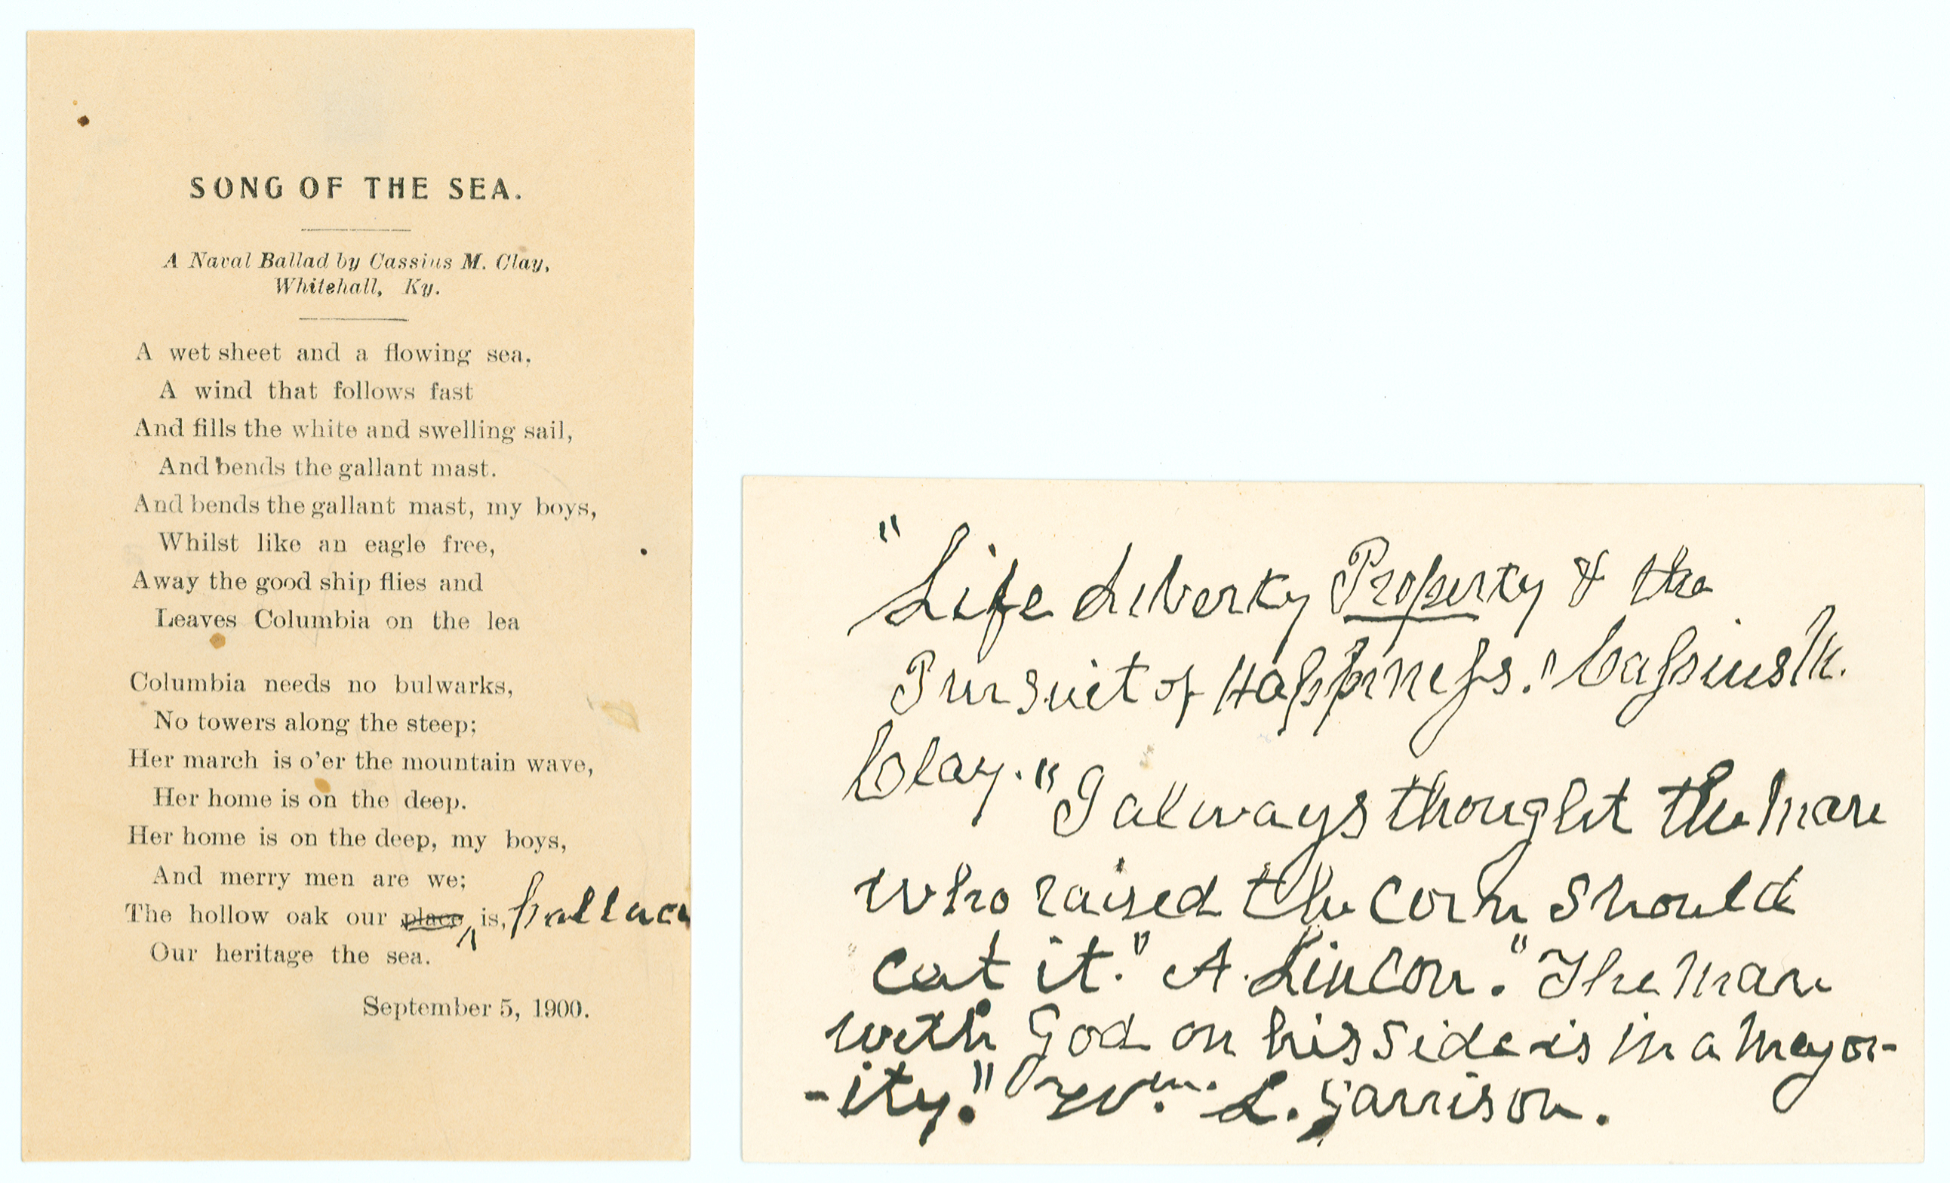 SONG OF THE SEA.
A Naval Ballad by Cassius M. Clay,
Whitehall, Ky.
A wet sheet and a flowing sea,
A wind that follows fast
And fills the white and swelling sail,
And bends the gallant mast.
And bends the gallant mast, my boys,
Whilst like an eagle free,
Away the good ship flies and
Leaves Columbia on the lea
Columbia needs no bulwarks,
No towers along the steep;
Her march is o'er the mountain wave,
Her home is on the deep.
Her home is on the deep, my boys,
And merry men are we;
The hollow oak our place is,
Our heritage the sea.
September 5, 1900.
"Life Liberty Property & the
Pursuit of Happiness." Cassius M.
Clay. "I always thought the man
who raised the corn should
eat it." A. Lincon. "The man
with God on his side is in a mayor-
-ity." Wm. L. Garrison.